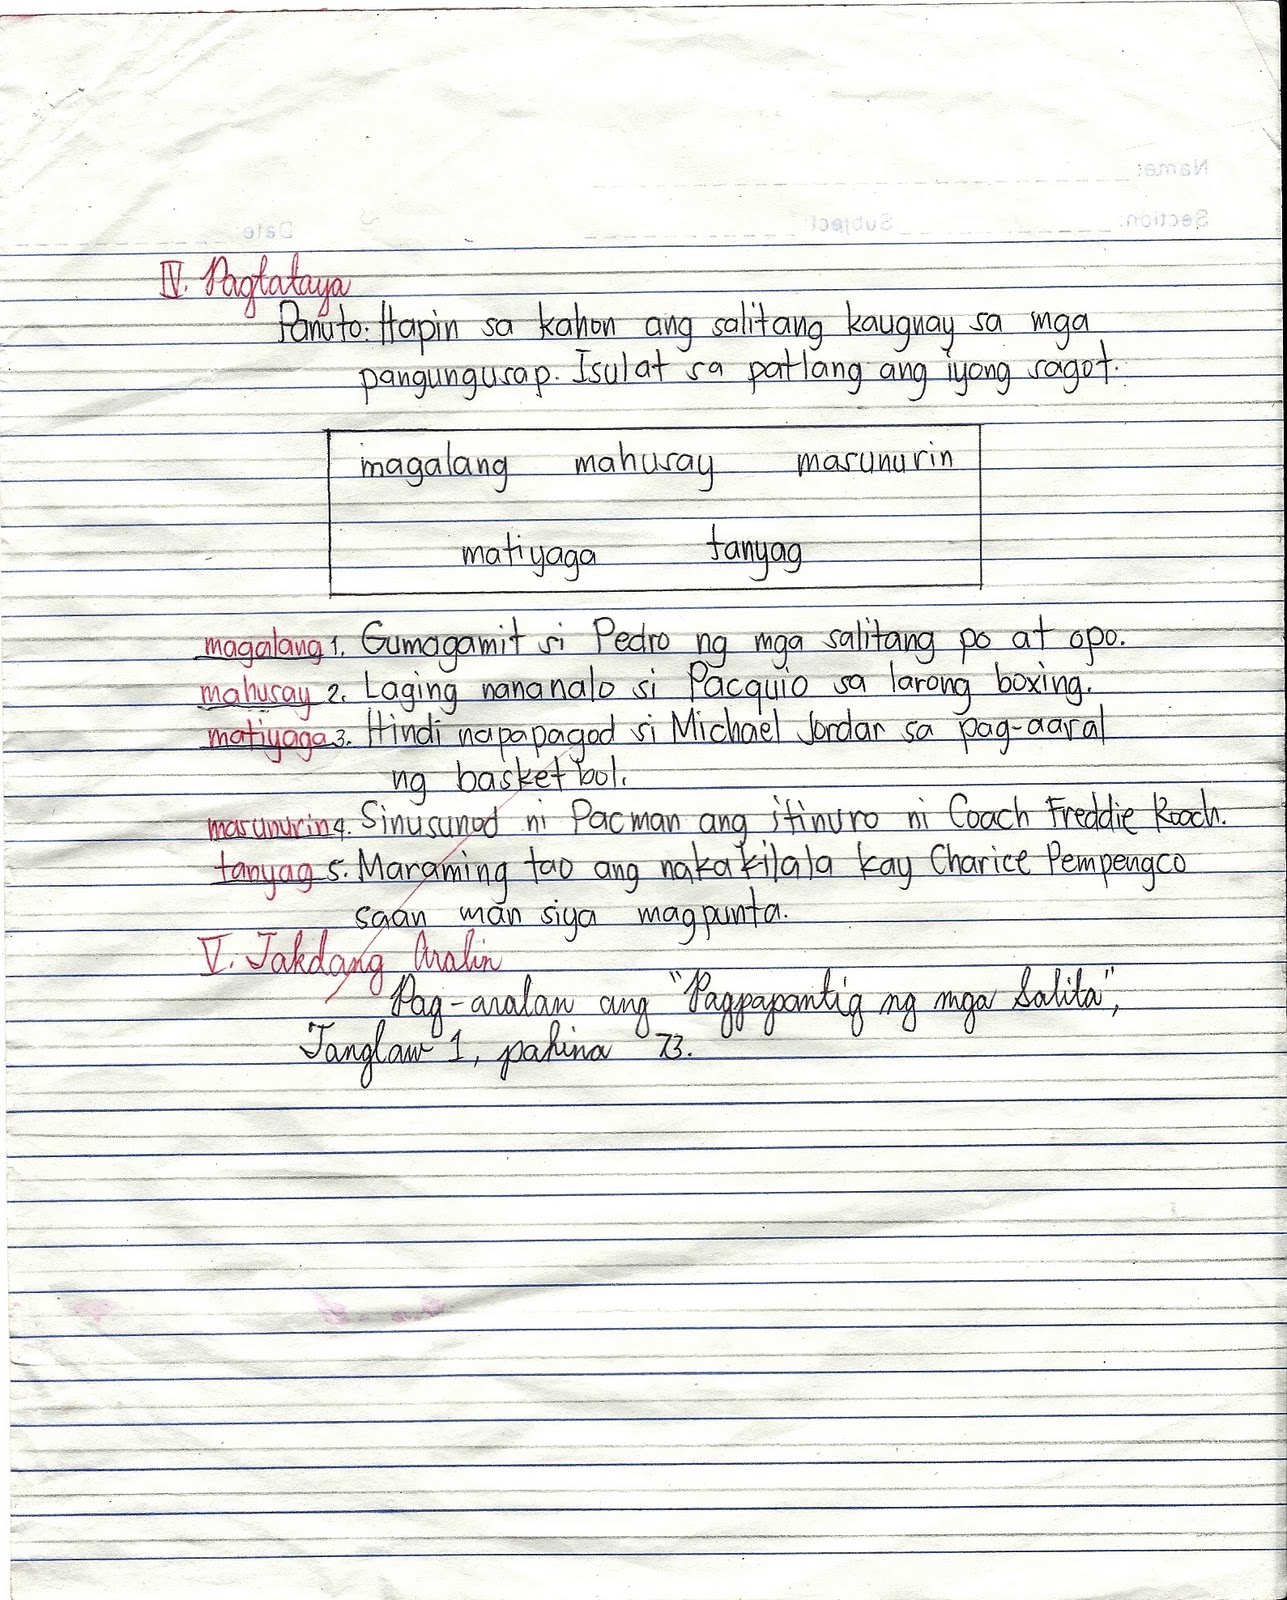 Name:
Section: Subject: Date:
IV. Pagtataya
Panuto: Hapin sa kahon ang salitang kaugnay sa mga
pangungusap. Isulat sa patlang ang iyong sagot.
magalang mahusay masunurin
matiyaga tanyag
magalang 1. Gumagamit si Pedro ng mga salitang po at opo.
mahusay 2. Laging nananalo si Pacquio sa larong boxing.
matiyaga 3. Hindi napapagod si Michael Jordar sa pag-aaral
ng basketbol.
masunurin 4. Sinusunod ni Pacman ang itinuro ni Coach Freddie Roach.
tanyag 5. Maraming tao ang nakakilala kay Charice Pempengco
saan man siya magpunta.
V. Takdang Aralin
Pag-aralan ang "Pagpapantig ng mga Salita",
Tanglaw 1, pahina 73.